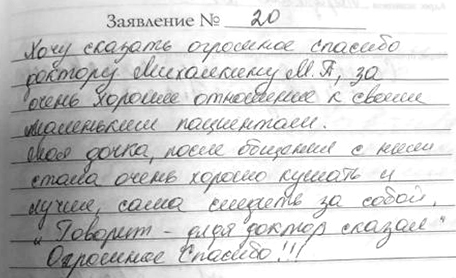 Заявление № 20
Хочу сказать огромное спасибо
доктору Михалкину М.П, за
очень хорошее отношение к своим
маленьким пациентам.
Моя дочка, после общения с ним
стала очень хорошо кушать и
лучше, сама следить за собой.
„Говорит - дядя доктор сказал"
Огромное Спасибо!!!